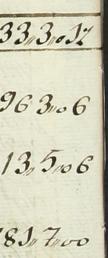 33,,3,,0.12
963,,06
13,,5,,06
781,,7,,00